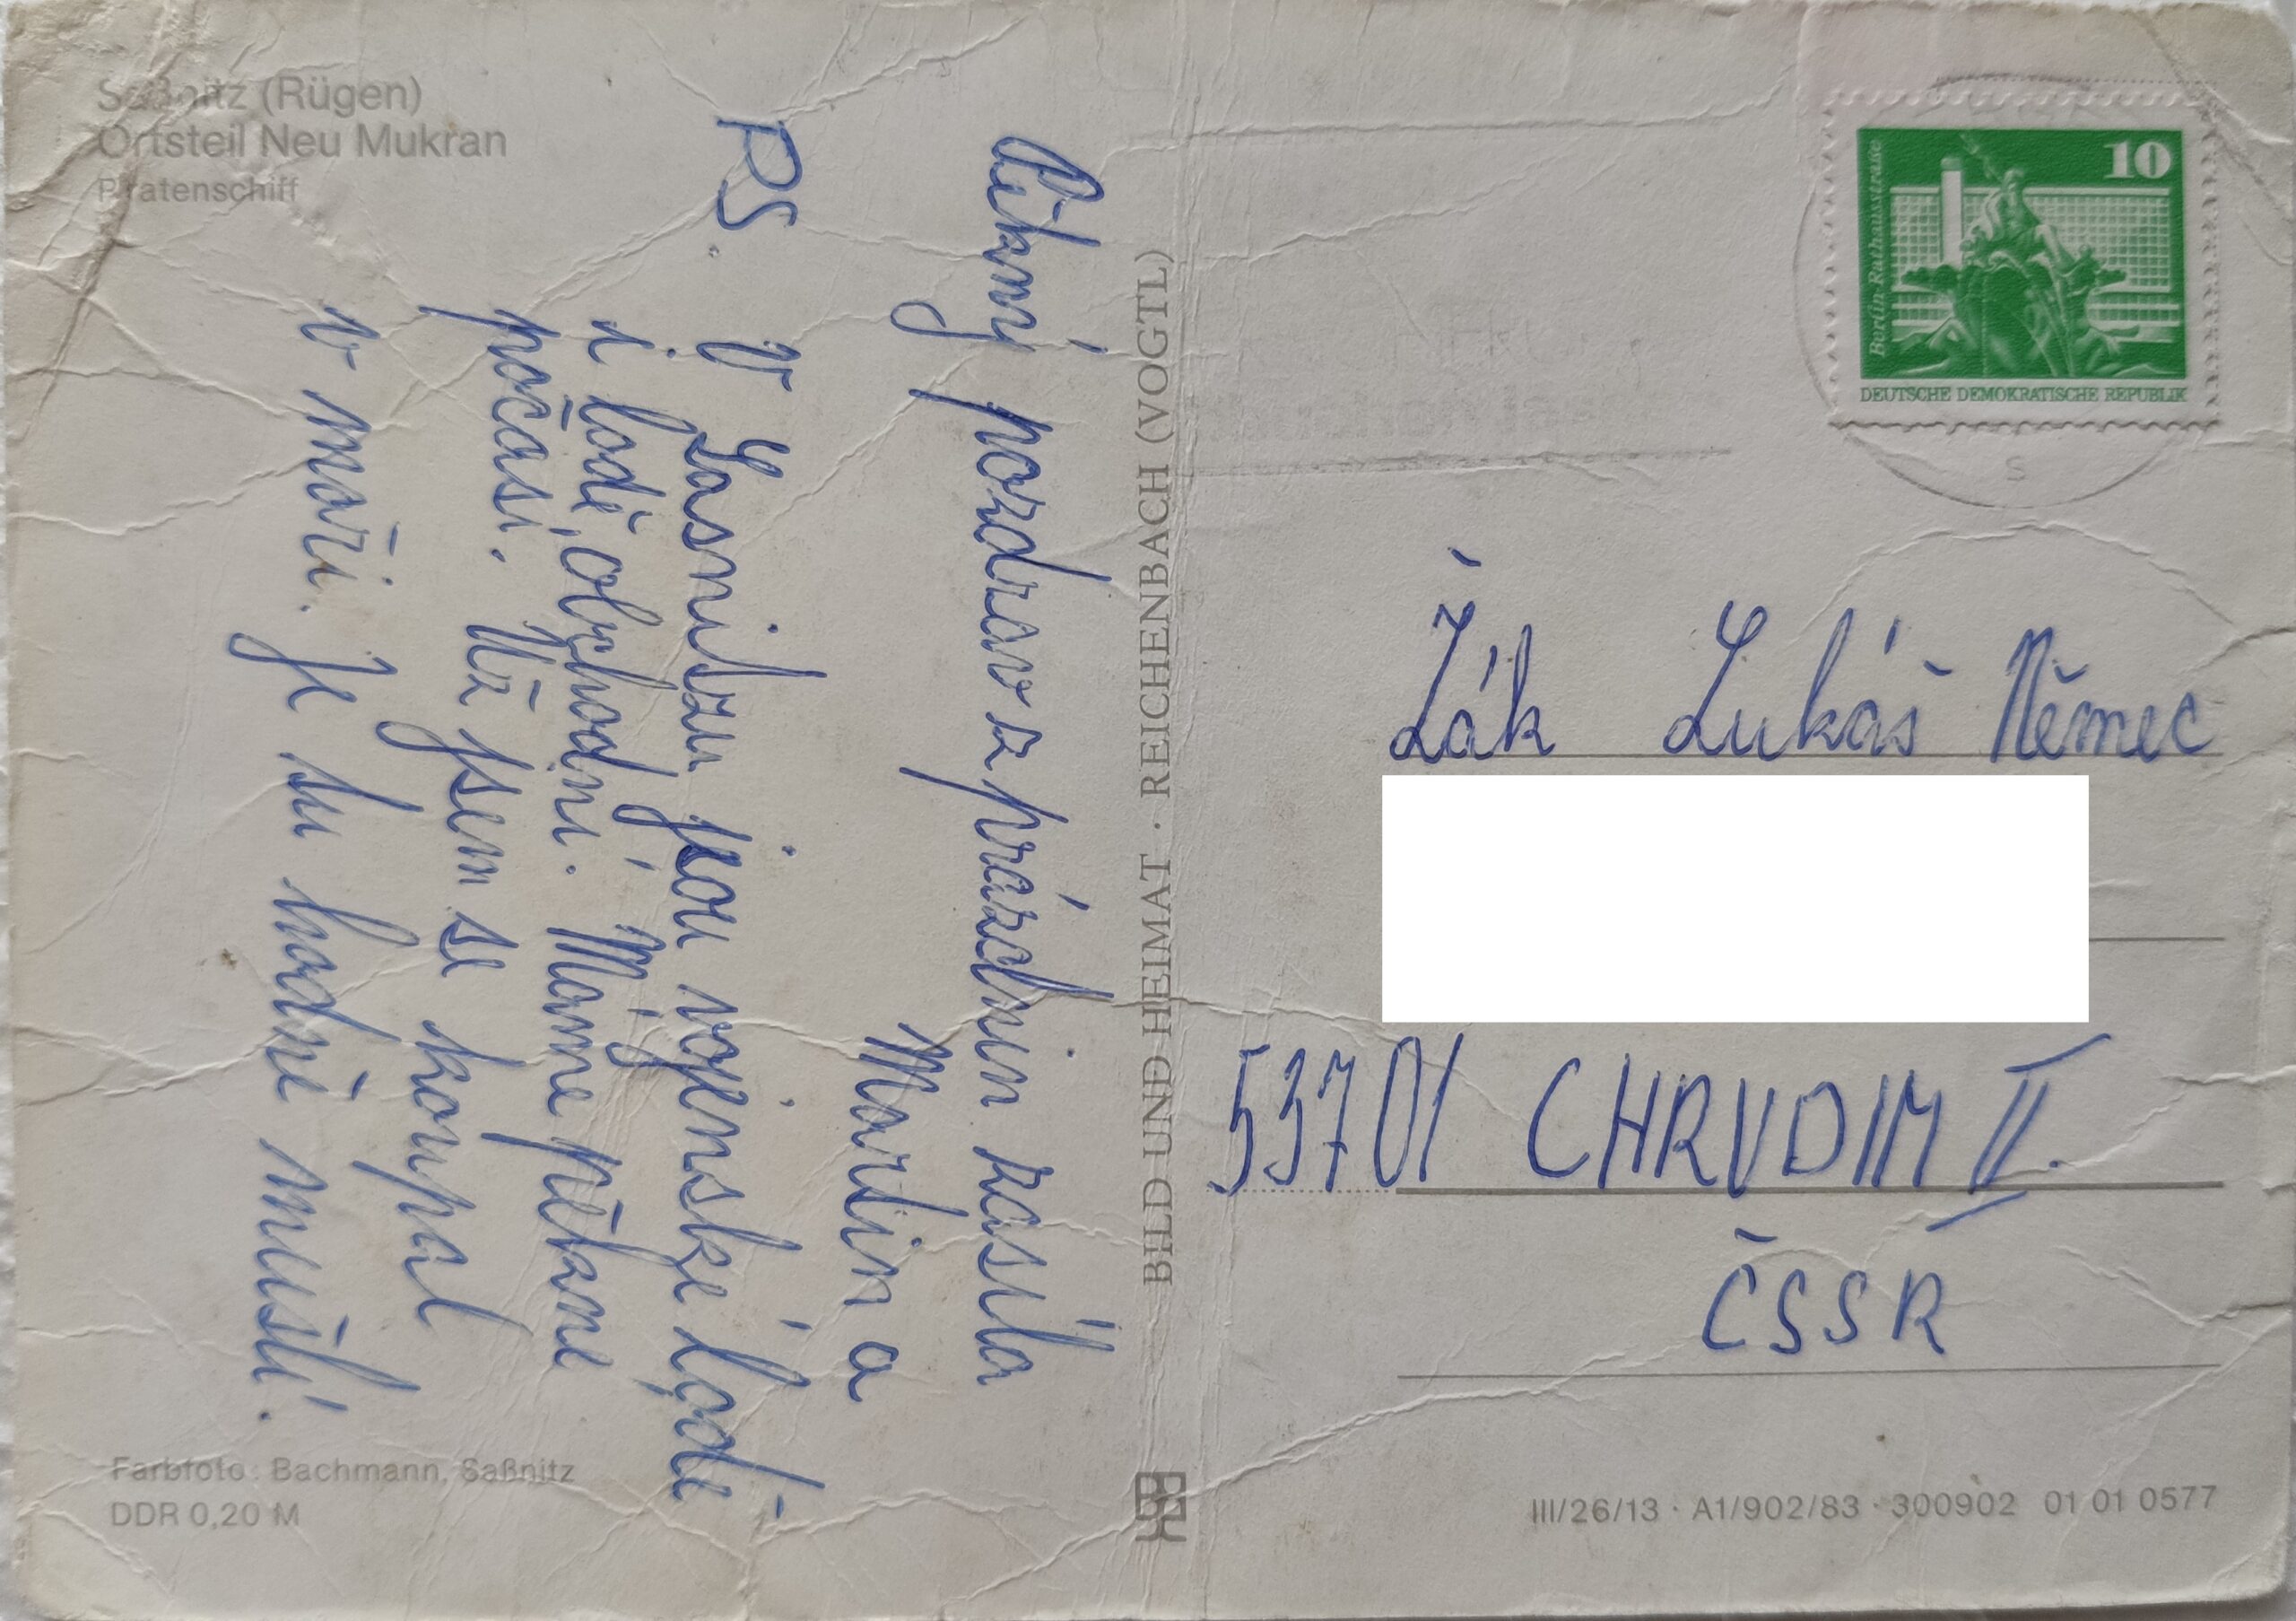 Saßnitz (Rügen)
Ortsteil Neu Mukran
Piratenschiff
Pěkný pozdrav z prázdnin zasílá
Martin a
PS. V Sasnitzu jsou vojenské lodě
i lodě obchodní. Máme pěkné
počasí. Už jsem se koupal
v moři. Je tu hodně mušlí.
Farbfoto: Bachmann, Saßnitz
DDR 0,20 M
BILD UND HEIMAT · REICHENBACH (VOGTL)
10
Berlin Rathausstraße
DEUTSCHE DEMOKRATISCHE REPUBLIK
s
Žák Lukáš Němec
53701 CHRUDIM II.
ČSSR
III/26/13 · A1/902/83 · 300902 01 01 0577